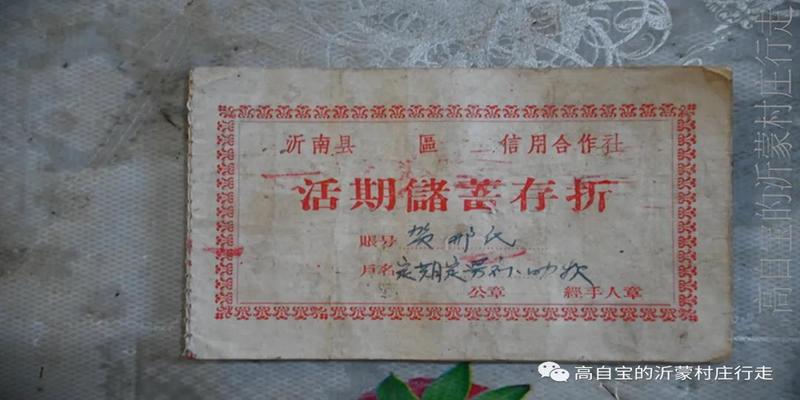 沂南县 區 信用合作社
活期儲蓄存折
賬号 贺邢氏
戶名 定期定
公章 經手人章
高自宝的沂蒙村庄行走
高自宝的沂蒙村庄行走